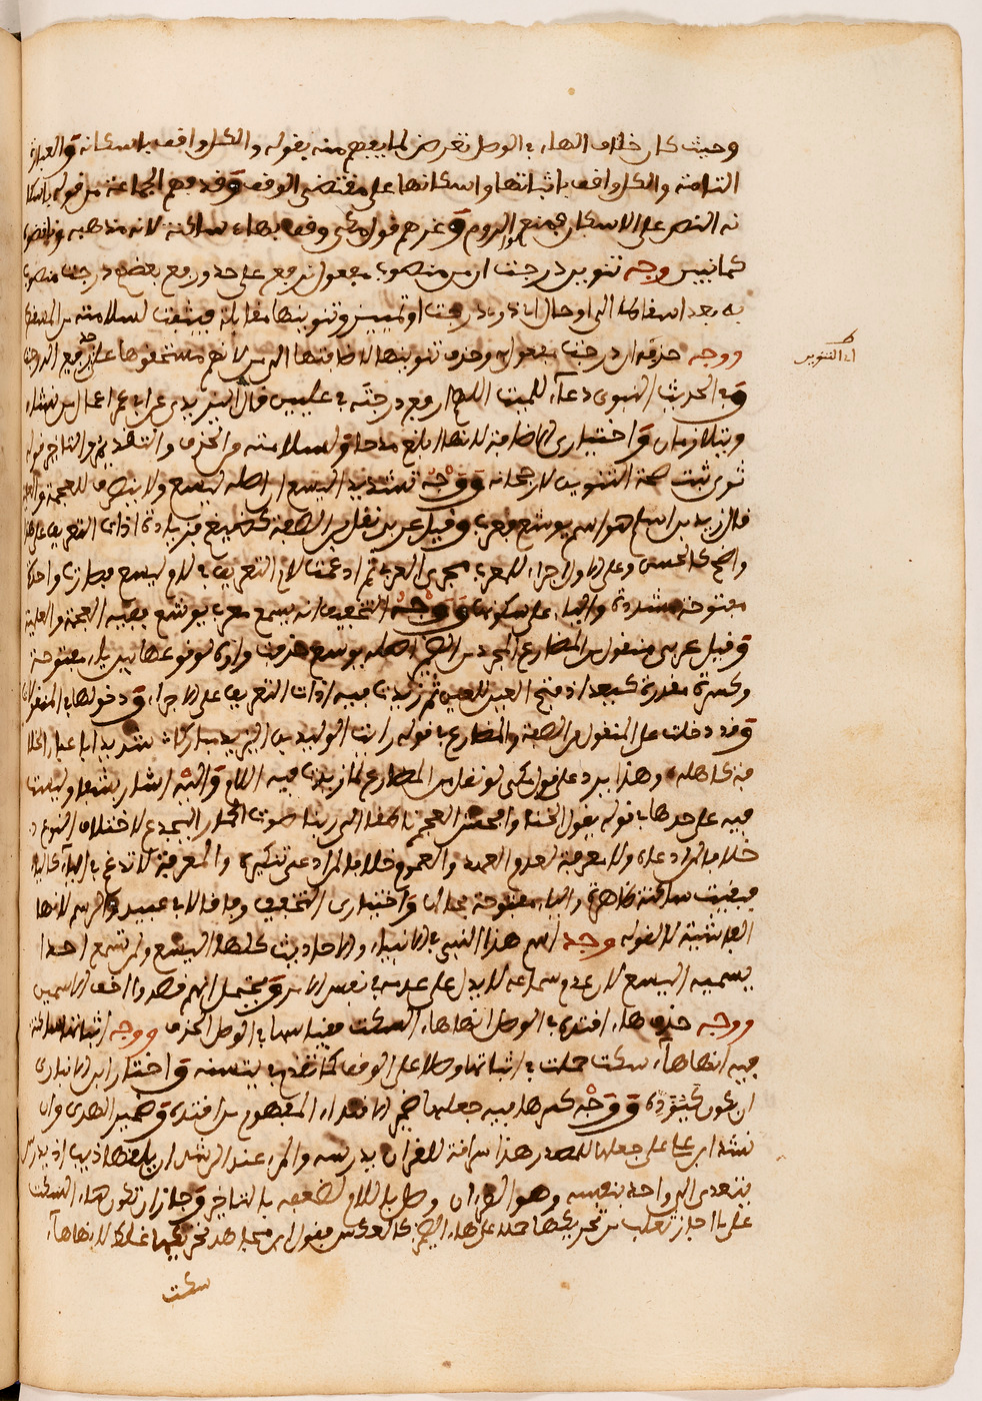 وحيث كان خلاف الهاء في الوصل تعرض لما يفهم منه بقوله والكل واقف باسكانه والعبارة
التامة والكل واقف باثباتها واسكانها على مقتضى الوقف وقد فهم الجماعة من قوله باسكا
نه النص على الاسكان فمنعوا الروم وغرهم قول مكي وقف بهاء ساكنة لانه مذهبه
وجه تنوين درجت ان من منصوب مفعول نرفع على حد ورفع بعضهم درجت منصوب
به بعد اسقاط الى او حال اي ذوي درجت او تمييز وتنوينها مقابلة فيثبت لسلامته من
ووجه حذفه ان درجت مفعول وحذف تنوينها لاضافتها الى من لانهم مستحقوها على حد رفيع الدرجت
اي التنوين
وفي الحديث النبوي دعاء للميت اللهم ارفع درجته في عليين قال
ويتلازمان واختياري الاضافة لانها ابلغ مدحا ولسلامته من الحذف والتقديم والتاخير
ثبت صحة التنوين لارجحانه ووجه تشديد اليسع ان اصله ليسع ولا ينصرف للعجمة والعلمية
قال زيد بن اسلم هو اسم يوشع فعرب وقيل عربي نقل من الصفة كضيغم فزيدت اداة التعريف على
واضح كالحسن وعلى الاول اجراء للمعرب مجرى العرب ثم ادغمت لام التعريف في لام ليسع فصارتا واحدة
مفتوحة مشددة والياء على سكونها ووجه التخفيف انه يسع معرب يوشع ففيه العجمة والعلمية
وقيل عربي منقول من المضارع المجرد من الضمير اصله يوسع حذفت واوه لوقوعها بين ياء مفتوحة
وكسرة مقدرة كيعد اذ فتح العين للعين ثم زيدت فيه اداة التعريف على الاجراء ودخولها في المنقول
وقد دخلت على المنقول من الصفة والمضارع في قوله رايت الوليد بن اليزيد مباركا شديدا باعباء الخلا
فة كاهله وهذا يرد على قول مكي لو نقل من المضارع لما زيدت فيه اللام
فيه على حدها في قوله يقول الخنا وابغض العجم ناطقا الى ربنا صوت الحمار اليجدع لاختلاف النوع
خلافا لمن ادعاه ولا معرفة لعدم العهد والعموم خلافا لمن ادعى تنكيره والمعرفة لا تدغم في الياء
فبقيت ساكنة ظاهرة والياء مفتوحة بحالها واختياري التخفيف وفاقا لابي عبيد لانها
وجه اسم هذا النبي في الانبياء والاحاديث كلها اليسع ولم نسمع احدا
يسميه اليسع لان عدم سماعه لا يدل على عدمه في نفس الامر ويحتمل انهم قصدوا اخف الاسمين
ووجه حذف هاء اقتده في الوصل انها هاء السكت فقياسها في الوصل الحذف ووجه اثباتها ساكنة
فيه انها هاء سكت حملت في اثباتها وصلا على الوقف كما تقدم في يتسنه واختار ابن الانباري
ان تكون ووجه كسرها فيه جعلها ضمير الاقتداء المفهوم من اقتده وضمير الهدى وان
نشد ابو علي على جعلها للمصدر هذا سراقة للقران يدرسه والمرء عند الرشا ان يلقها ذيب اذ يدرس
يتعدى الى واحد بنفسه وهو القران وصل باللام لضعفه بالتاخر وجاز ان تكون هاء السكت
على ما اجاز ثعلب من تحريكها حملا على هاء الضمير كالعكس فقول ابن مجاهد تحريكها غلط لانها هاء
سكت